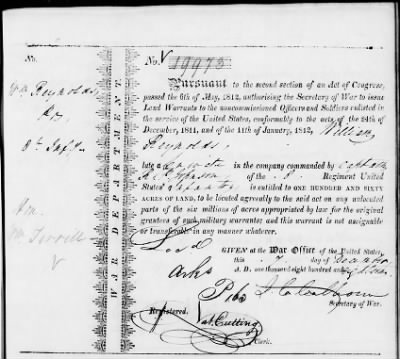 No.
No. 19975
Wm Reynolds,
Pursuant to the second section of an Act of Congress,
passed the 6th of May, 1812, authorising the Secretary of War to issue
Land Warrants to the noncommissioned Officers and Soldiers enlisted in
the service of the United States, conformably to the acts of the 24th of
December, 1811, and of the 11th of January, 1812, William
8th Infy
Reynolds,
late a Private in the company commanded by
Johnson, of the 8 Regiment United
States' Infantry is entitled to ONE HUNDRED AND SIXTY
ACRES OF LAND, to be located agreeably to the said act on any unlocated
parts of the six millions of acres appropriated by law for the original
grantees of such military warrants; and this warrant is not assignable
or transferable in any manner whatever.
WAR DEPARTMENT.
GIVEN at the War Office of the United States
this 7 day of
A. D. one thousand eight hundred and
Arks
J. C. Calhoun
Secretary of War.
Registered,
Nat. Cutting
Clerk.